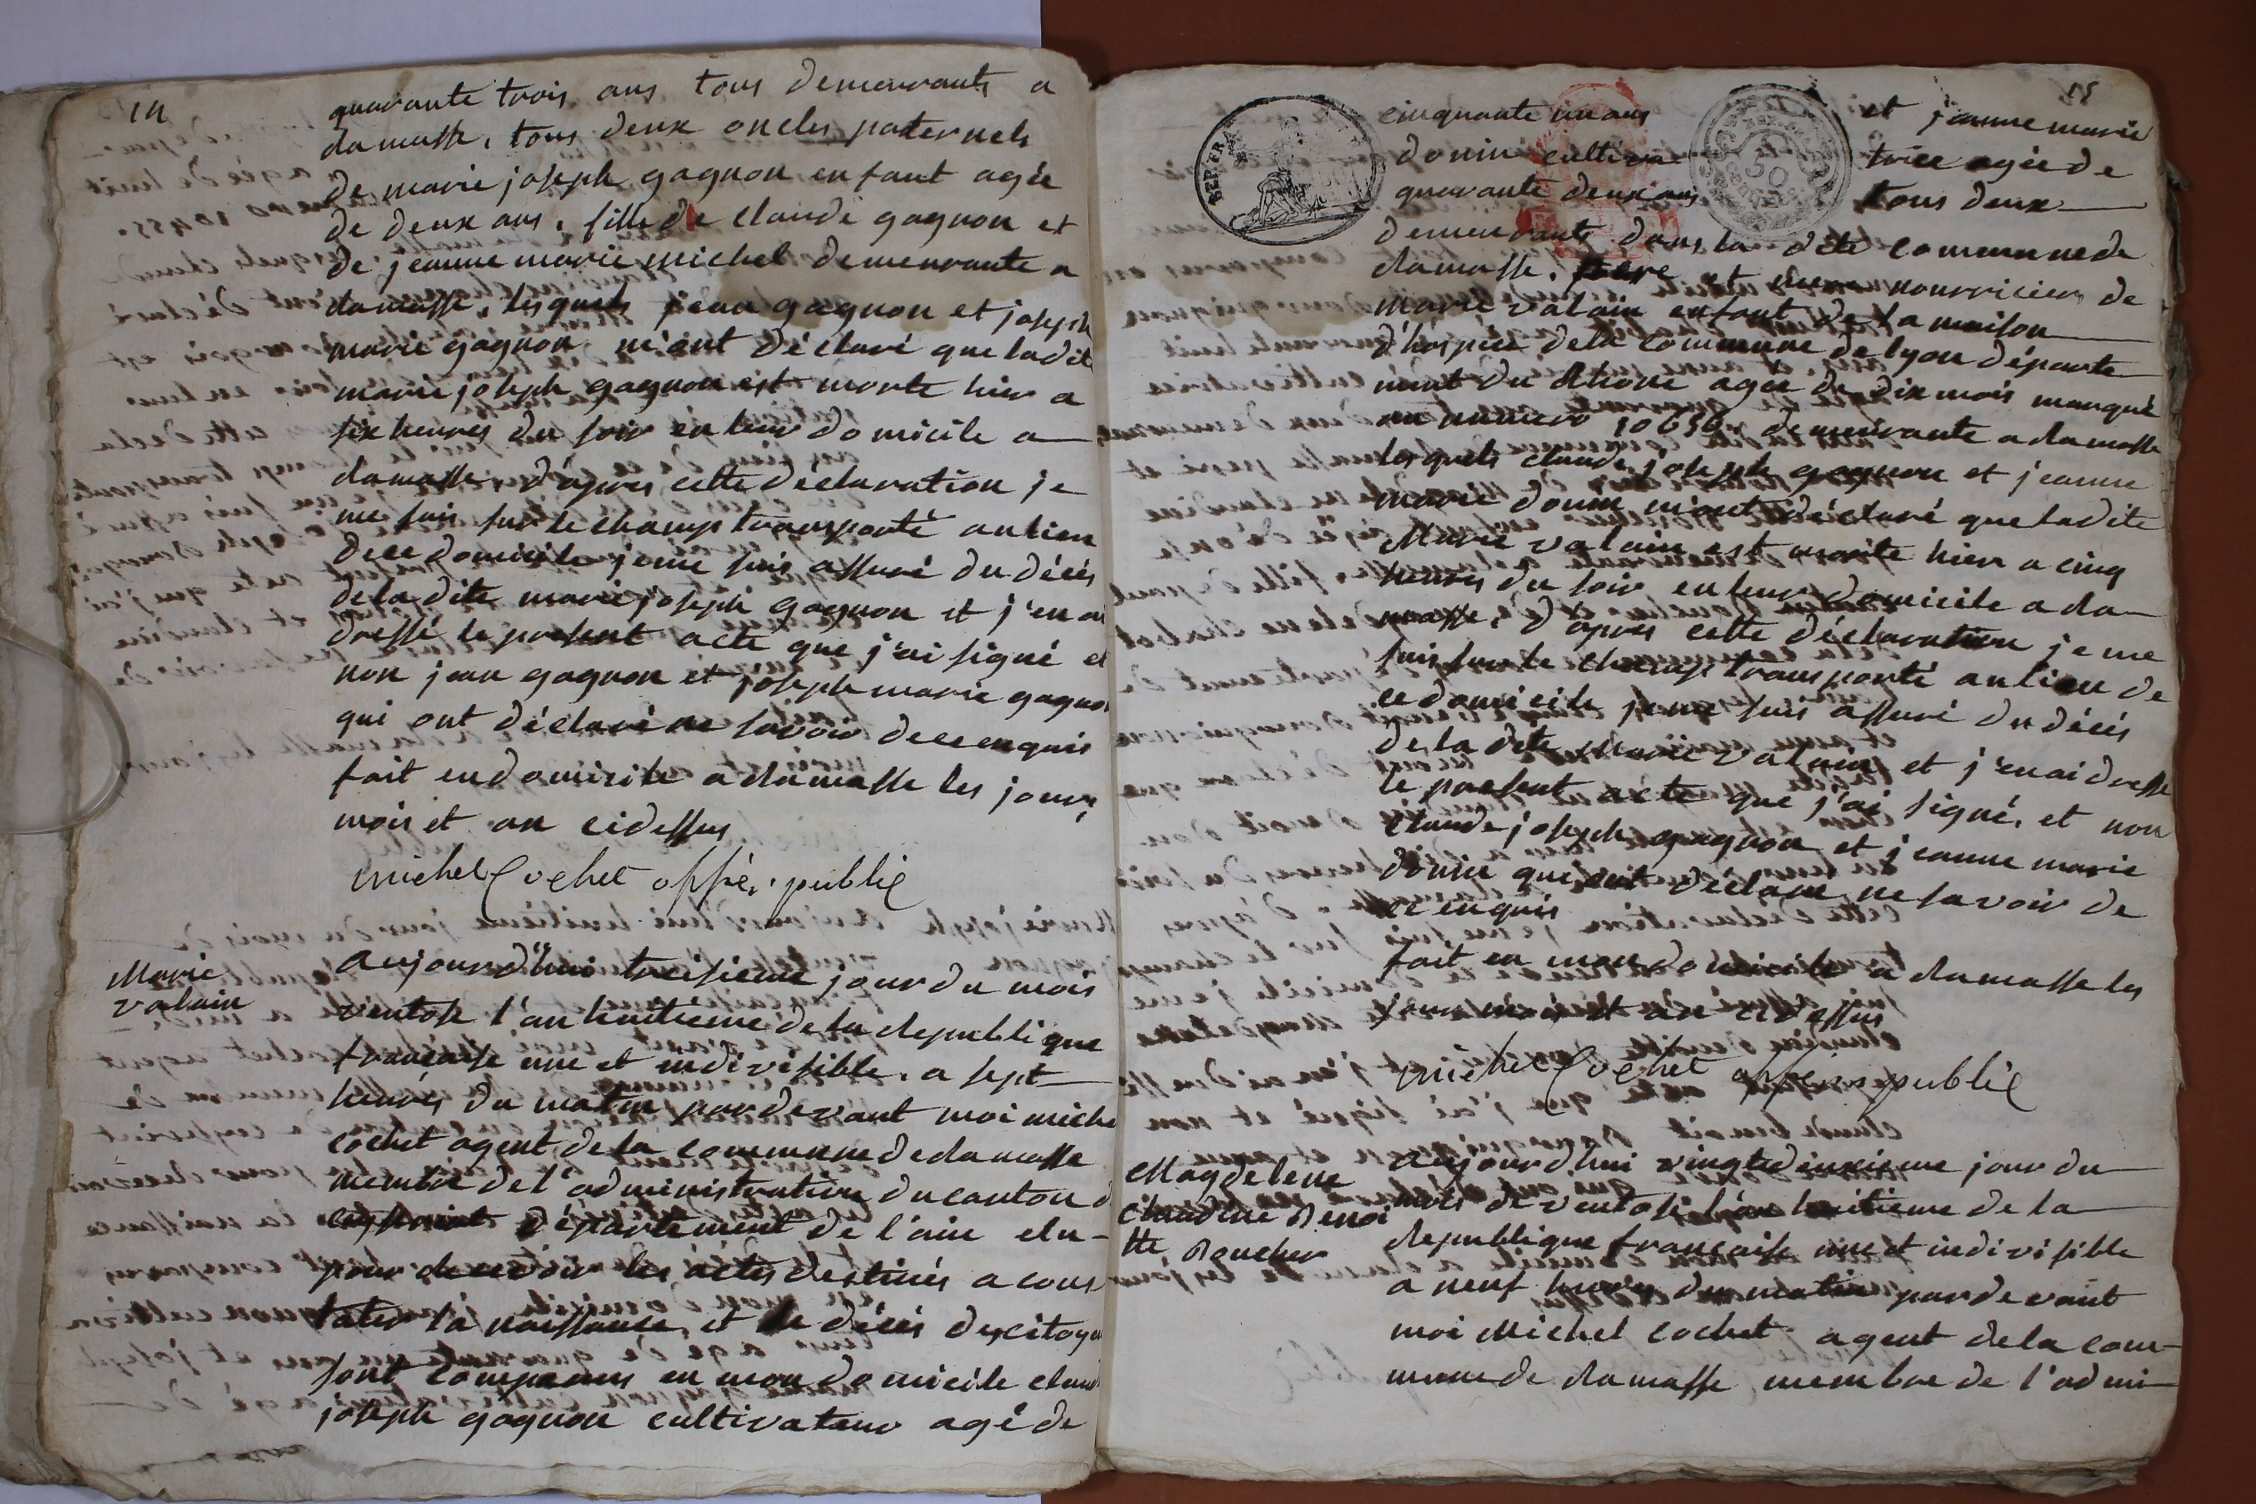 14
quarante trois ans tous demeurants a
damasse, tous deux oncles paternels
de marie joseph gagnon enfant agée
de deux ans, fille de claude gagnon et
de jeanne marie michel demeurante a
damasse, lesquels jean gagnon et joseph
marie gagnon m'ont déclaré que ladite
marie joseph gagnon est morte hier a
six heures du soir en leur domicile a
damasse, d'apres cette déclaration je
me suis sur le champ transporté au lieu
de ce domicile je me suis assuré du décés
de la dite marie joseph gagnon et j'en ai
dressé le present acte que j'ai signé et
non jean gagnon et joseph marie gagnon
qui ont déclaré ne savoir de ce enquis
fait en domicile a damasse les jours
mois et an cidessus
michel Cochet offier public
Marie
valain
aujourd'hui treisieme jour du mois
ventose l'an huitieme de la republique
francaise une et indivisible, a sept
heures du matin pardevant moi michel
cochet agent de la commune de damasse
membre de l'administration du canton d
département de l'ain elu
pour recevoir les actes destinés a cons
tater la naissance et le décés des citoyens
sont comparus en mon domicile claude
joseph gagnon cultivateur agé de
15
cinquante un ans et jeanne marie
donin cultiva trice agée de
quarante deux ans tous deux
demeurants dans la dite commune de
damasse, pere et mere nourriciers de
marie valain enfant de la maison
d'hospice de la commune de lyon départe
ment du Rhone agée de dix mois marqué
au numero 10656 demeurante a damasse
lesquels claude joseph gagnon et jeanne
marie donin m'ont déclaré que ladite
Marie valain est morte hier a cinq
heures du soir en leur domicile a da
masse, d'apres cette déclaration je me
suis sur le champ transporté au lieu de
ce domicile je me suis assuré du décés
de la dite Marie valain et j'en ai dressé
le present acte que j'ai signé, et non
claude joseph gagnon et jeanne marie
donin qui ont déclaré ne savoir de
ce enquis
fait en mon domicile a damasse les
jour mois et an cidessus
michel Cochet offier public
Magdelene
claudine Benoi
tte Boucher
aujourd'hui vingtdeuxieme jour du
mois de ventose l'an huitieme de la
Republique francaise une et indivisible
a neuf heures du matin pardevant
moi Michel cochet agent de la com
mune de damasse membre de l'admi
REP. FRA
50